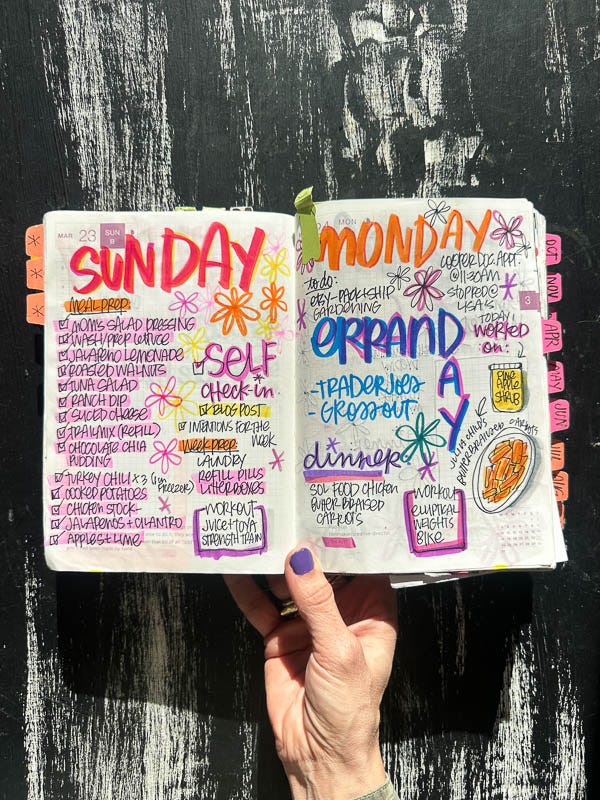 MAR 23 SUN
SUNDAY
MEAL PREP:
MOM'S SALAD DRESSING
WASH/PREP LETTUCE
JALAPEÑO LEMONADE
ROASTED WALNUTS
TUNA SALAD
RANCH DIP
SLICED CHEESE
TRAILMIX (REFILL)
CHOCOLATE CHIA
PUDDING
TURKEY CHILI X 3 (1 in FREEZER)
COOKED POTATOES
CHICKEN STOCK
JALAPEÑOS + CILANTRO
APPLES + LIME
SELF
CHECK-IN
BLOG POST
INTENTIONS FOR THE
WEEK
WEEK PREP:
LAUNDRY
REFILL PILLS
LITTERBOXES
WORKOUT
JUICE + TOYA
STRENGTH TRAIN
MON
MONDAY
to do:
ETSY - PACK + SHIP
GARDENING
COOPER DOC APPT
@ 11:30AM
STOPPED @
LISA'S
TODAY I
WORKED
ON:
ERRAND
DAY
- TRADER JOES
- GROSS OUT
PINE
APPLE
SHRUB
JULIA CHILD'S
BUTTER BRAISED CARROTS
dinner:
SOL FOOD CHICKEN
BUTTER BRAISED
CARROTS
WORKOUT
ELLIPTICAL
WEIGHTS
BIKE
3
OCT
NOV
APR
MAY
JUN